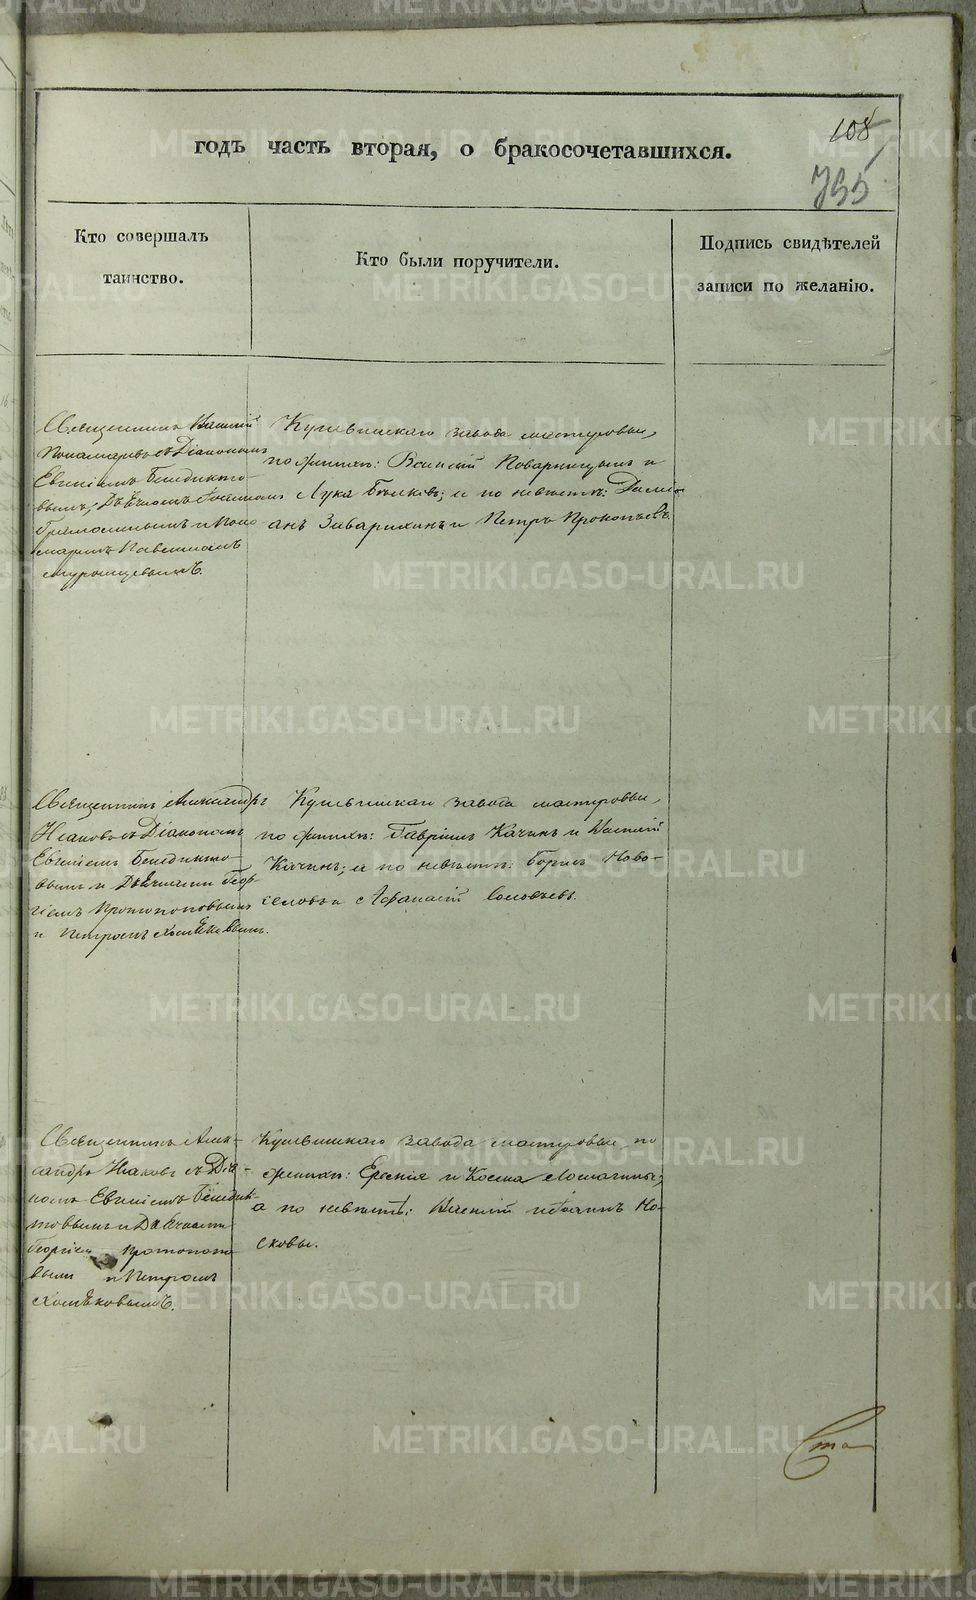 108
755
годъ часть вторая, о бракосочетавшихся.
Кто совершалъ
таинство.
Кто были поручители.
Подпись свидѣтелей
записи по желанію.
Священникъ Василій
Пономаревъ съ Діакономъ
Евгеніемъ Бенедикто-
вымъ, Дьячкомъ
и Поно
маремъ Павломъ
Кушвинскаго завода мастеровые,
по женихѣ: Василій Поварницынъ и
Лука Бѣлковъ; а по невѣстѣ: Даміа
анъ Заварихинъ и Петръ Прокопьевъ.
Священникъ Александръ
Іаковъ съ Діакономъ
Евгеніемъ Бенедикто-
вымъ и Дьячками Геор-
гіемъ Протопоповымъ
и Петромъ Хомяковымъ.
Кушвинскаго завода мастеровые,
по женихѣ: Гавріилъ Качинъ и Василій
Качинъ; а по невѣстѣ: Борисъ Ново-
селовъ и Афанасій Соловьевъ.
Священникъ Алек-
сандръ Іаковъ съ Діа-
номъ Евгеніемъ Бенедик-
товымъ и Дьячками
Георгіемъ Протопопо-
выми и Петромъ
Хомяковымъ.
Кушвинскаго завода мастеровые по
женихѣ: и Косма Лошагины;
а по невѣстѣ: Василій и Іоаннъ Но-
сковы.
Ста
METRIKI.GASO-URAL.RU